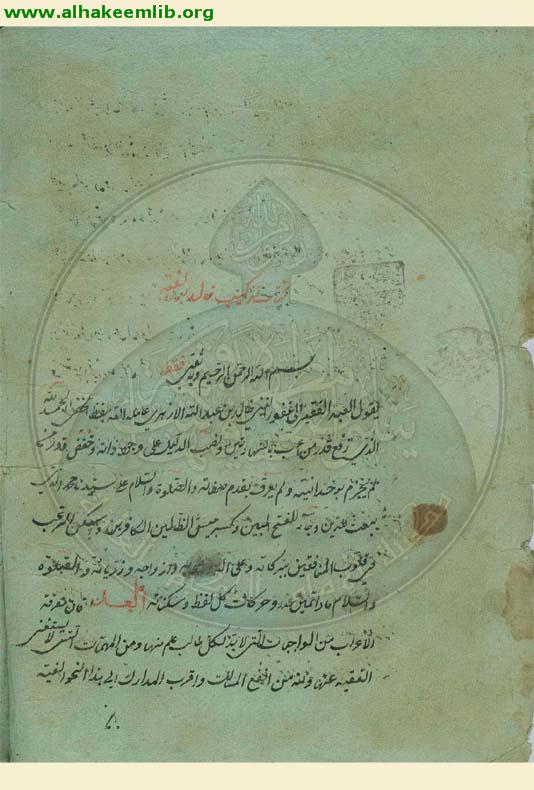 www.alhakeemlib.org
بسم الله الرحمن الرحيم وبه ثقتي
يقول العبد الفقير الى عفو ربه الغني خالد بن عبد الله الازهري عامله الله بلطفه الخفي الحمد لله
الذي رفع قدر من اعرب بالشهادتين ونصب الدليل على وجود ذاته وخفض قدر من
لم يجزم بوحدانيته ولم يعرف بقدم صفاته والصلوة والسلام على سيدنا محمد الذي
بالفتح المبين وكسر جيش الظالمين الكافرين وسكن الرعب
في قلوب المنافقين ببركاته وعلى وازواجه وذرياته والصلوة
والسلام دائمين عدد حركات كل لفظ وسكناته فان معرفة
الأعراب من الواجبات التي لا بد لكل طالب علم منها ومن المهمات التي لا يستغني
الفقيه عنها وانه من انفع المسالك واقرب المدارك الى هذا النحو الفية